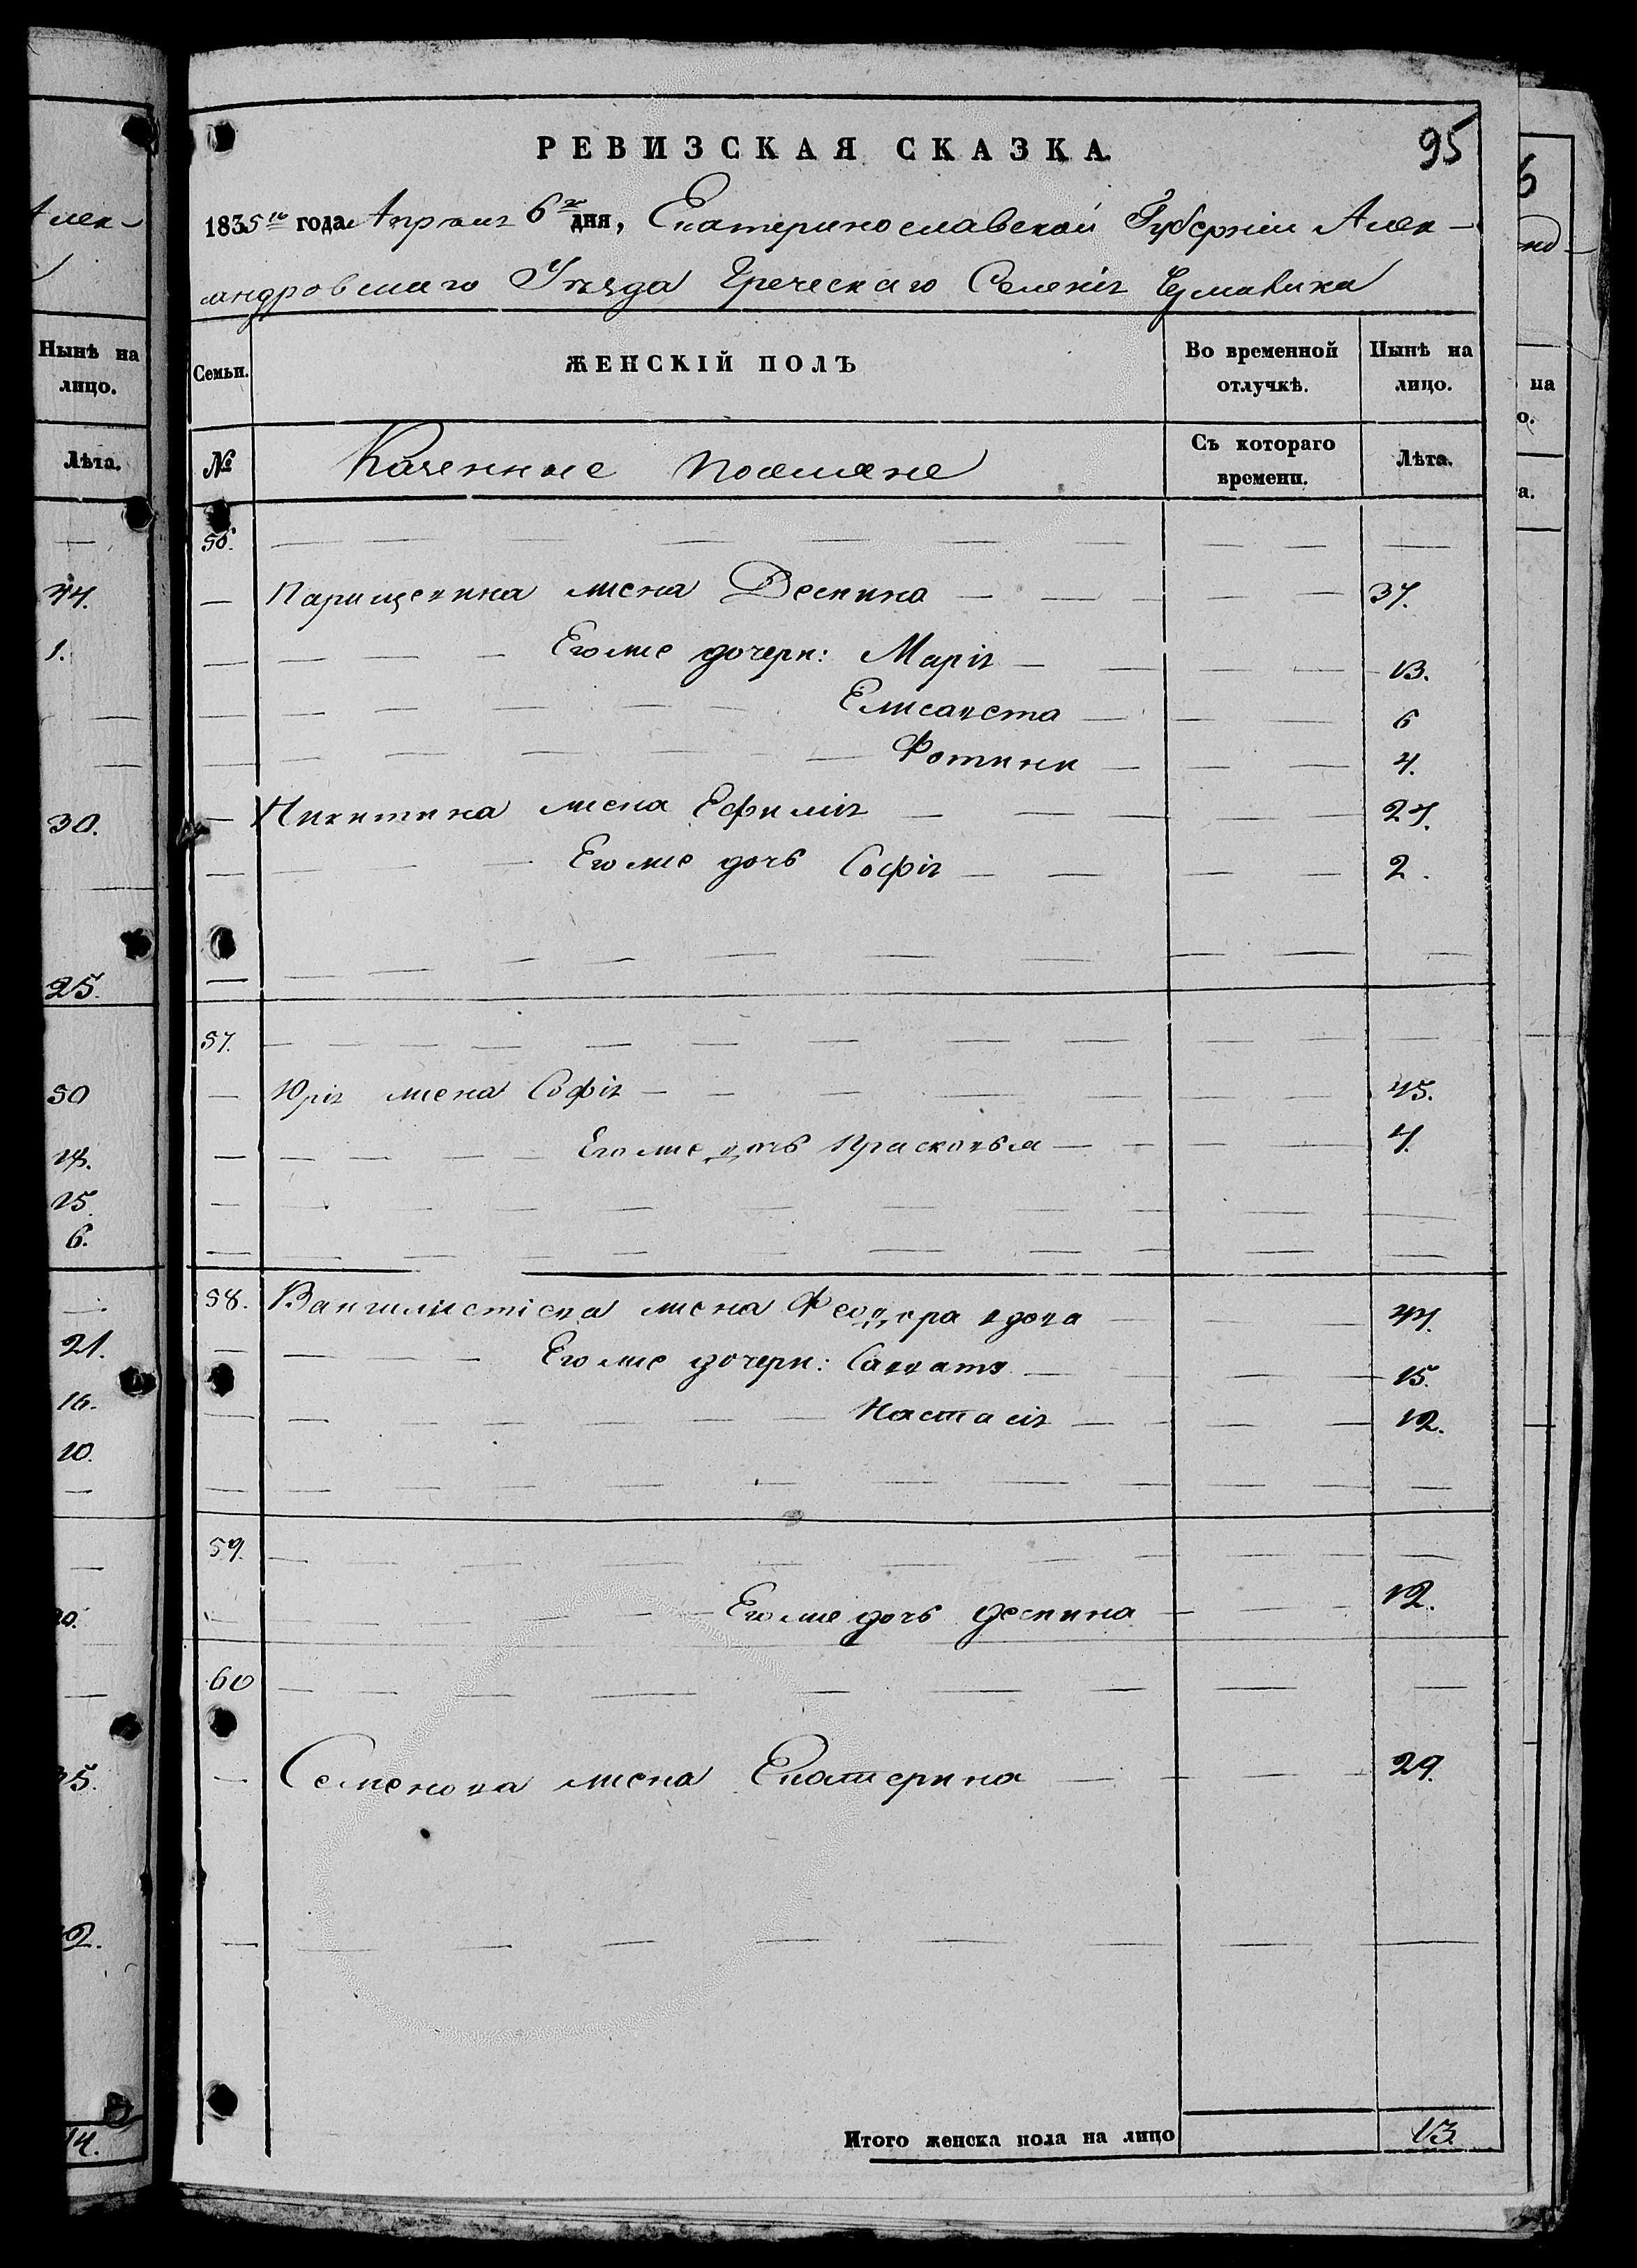 Алек-
Нынѣ на
лицо.
Лѣта.
44.
1.
30.
25.
50
18.
15.
6.
21.
16.
10.
14.
РЕВИЗСКАЯ СКАЗКА.
95
1835го года Апрѣля 6го дня, Екатеринославской Губерніи Алек-
сандровскаго Уѣзда Греческаго Селенія Чермалика
Семьи.
ЖЕНСКІЙ ПОЛЪ
Во временной
отлучкѣ.
Нынѣ на
лицо.
№
Казенные поселяне
Съ котораго
времени.
Лѣта.
56.
жена Деспина 37.
Его же дочери: Марія 13.
Елисавета 6
Фотини 4.
Никитина жена Ефимія 27.
Его же дочь Софія 2.
57.
Юрія жена Софія 45.
Его же дочь Прасковья 4.
58. жена Феодора вдова 44.
Его же дочери: Савати 15.
Настасія 12.
59.
Его же дочь Деспина 12.
60
Семенова жена Екатерина 29.
Итого женска пола на лицо 13.
на
о.
а.